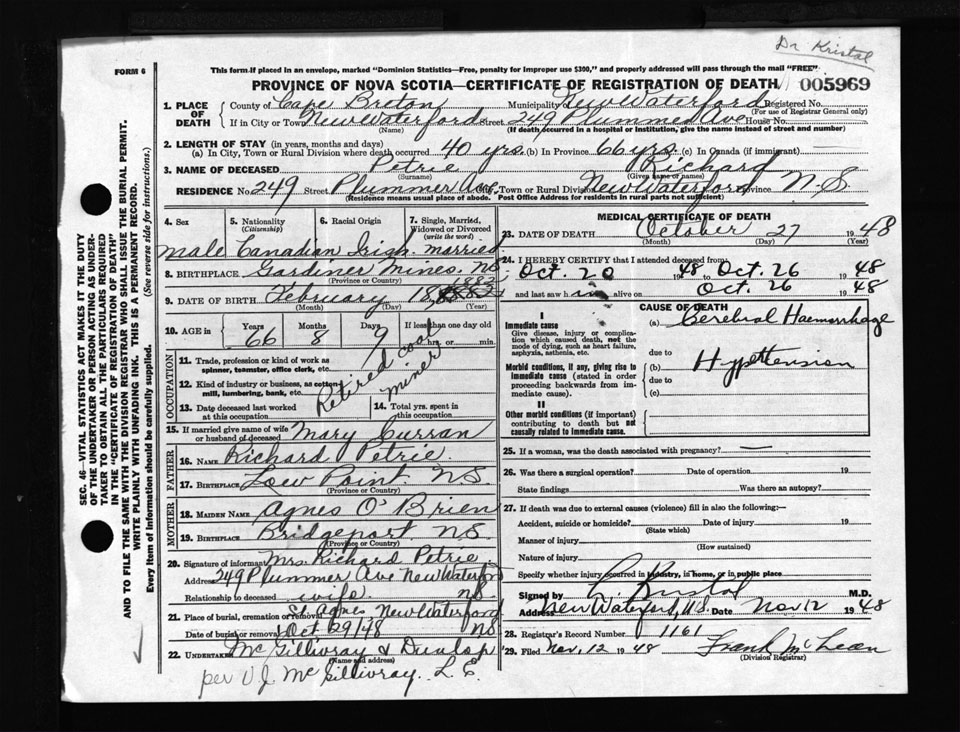 Dr Kristal
FORM 6
This form if placed in an envelope, marked "Dominion Statistics—Free, penalty for improper use $300," and properly addressed will pass through the mail "FREE."
PROVINCE OF NOVA SCOTIA—CERTIFICATE OF REGISTRATION OF DEATH 005969
1. PLACE OF DEATH
County of Cape Breton Municipality New Waterford Registered No.
(For use of Registrar General only)
If in City or Town New Waterford Street 249 Plummer Ave House No.
(Name) (If death occurred in a hospital or institution, give the name instead of street and number)
2. LENGTH OF STAY (in years, months and days)
(a) In City, Town or Rural Division where death occurred 40 yrs. (b) In Province 66 yrs. (c) In Canada (if immigrant) —
3. NAME OF DECEASED Petrie Richard
(Surname) (Given name or names)
RESIDENCE NO. 249 Street Plummer Ave. Town or Rural Division New Waterford Province N.S.
(Residence means usual place of abode. Post Office Address for residents in rural parts not sufficient)
4. Sex 5. Nationality (Citizenship) 6. Racial Origin 7. Single, Married, Widowed or Divorced (write the word)
male Canadian Irish married
8. BIRTHPLACE Gardiner Mines. NS
(Province or Country)
9. DATE OF BIRTH February 18, 1882
(Month) (Day) (Year)
10. AGE in Years Months Days If less than one day
66 8 9 hrs. or min.
OCCUPATION
11. Trade, profession or kind of work as spinner, teamster, office clerk, etc.
12. Kind of industry or business, as cotton mill, lumbering, bank, etc.
Retired coal miner
13. Date deceased last worked at this occupation
14. Total yrs. spent in this occupation
15. If married give name of wife or husband of deceased Mary Curran
FATHER
16. NAME Richard Petrie.
17. BIRTHPLACE Low Point. NS
(Province or Country)
MOTHER
18. MAIDEN NAME Agnes O'Brien
19. BIRTHPLACE Bridgeport NS.
(Province or Country)
20. Signature of informant Mrs Richard Petrie
Address 249 Plummer Ave New Waterford
Relationship to deceased wife NS.
21. Place of burial, cremation or removal St. Agnes New Waterford
Date of burial or removal Oct 29/48 NS
22. UNDERTAKER McGillivray & Dunlop
(Name and address)
per V.J. McGillivray. L.E.
MEDICAL CERTIFICATE OF DEATH
23. DATE OF DEATH October 27 1948
(Month) (Day) (Year)
24. I HEREBY CERTIFY that I attended deceased from:
Oct. 20 1948 to Oct. 26 1948
and last saw him alive on Oct. 26 1948
CAUSE OF DEATH
I
Immediate cause
Give disease, injury or complication which caused death, not the mode of dying, such as heart failure, asphyxia, asthenia, etc.
(a) Cerebral Haemorrhage
due to
Morbid conditions, if any, giving rise to immediate cause (stated in order proceeding backwards from immediate cause).
(b) Hypertension
due to
(c)
II
Other morbid conditions (if important) contributing to death but not causally related to immediate cause.
25. If a woman, was the death associated with pregnancy? —
26. Was there a surgical operation? Date of operation 19
State findings Was there an autopsy?
27. If death was due to external causes (violence) fill in also the following:—
Accident, suicide or homicide? Date of injury 19
(State which)
Manner of injury
(How sustained)
Nature of injury
Specify whether injury occurred in industry, in home, or in public place
Signed by Kristal M.D.
Address New Waterford, N.S. Date Nov 12 1948
28. Registrar's Record Number 1161
29. Filed Nov. 12 1948 Frank McLean
(Division Registrar)
SEC. 46—VITAL STATISTICS ACT MAKES IT THE DUTY
OF THE UNDERTAKER OR PERSON ACTING AS UNDER-
TAKER TO OBTAIN ALL THE PARTICULARS REQUIRED
IN THE "CERTIFICATE OF REGISTRATION OF DEATH"
AND TO FILE THE SAME WITH THE DIVISION REGISTRAR WHO SHALL ISSUE THE BURIAL PERMIT.
WRITE PLAINLY WITH UNFADING INK. THIS IS A PERMANENT RECORD.
Every item of Information should be carefully supplied. (See reverse side for instructions.)